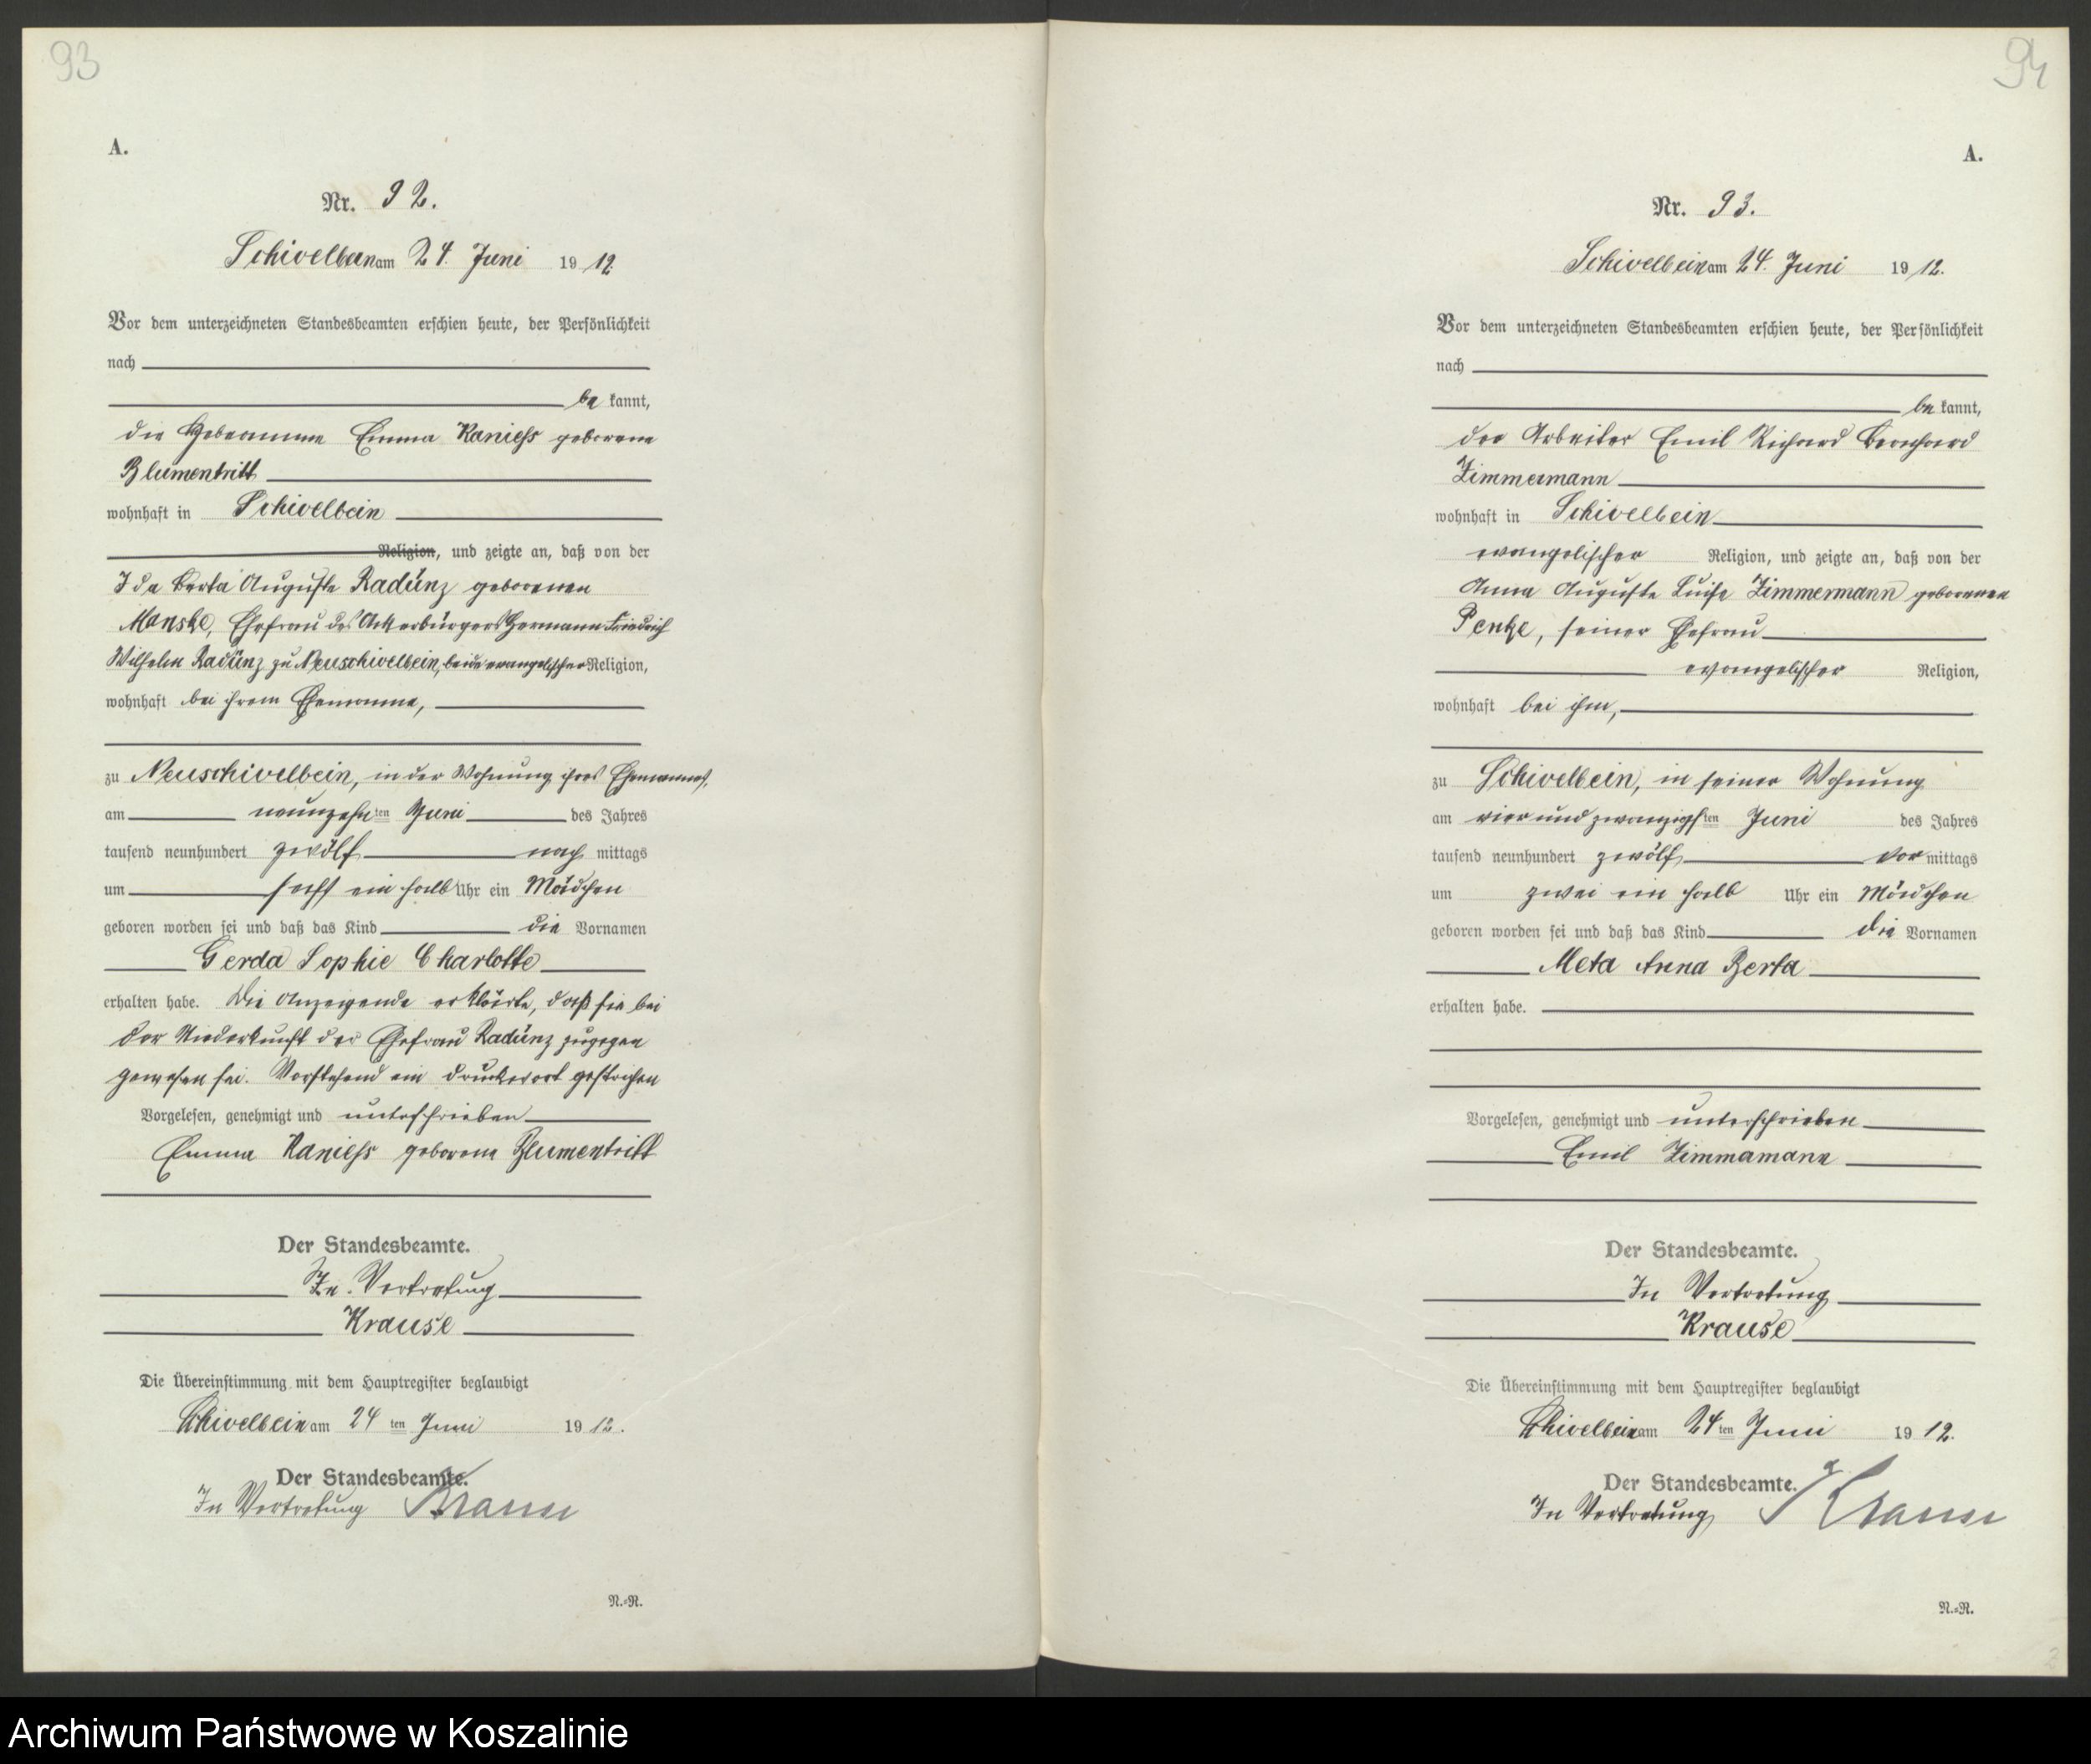 93
A.
Nr. 92.
Schivelbein am 24. Juni 1912.
Vor dem unterzeichneten Standesbeamten erschien heute, der Persönlichkeit
nach
be kannt,
die Hebeamme Emma Kaniess geborene
Blumentritt
wohnhaft in Schivelbein
Religion, und zeigte an, daß von der
Ida Berta Auguste Radünz geborenen
Manske, Ehefrau des Ackerbürgers Hermann Friedrich
Wilhelm Radünz zu Neuschivelbein, beide evangelischer Religion,
wohnhaft bei ihrem Ehemanne,
zu Neuschivelbein, in der Wohnung ihres Ehemannes,
am neunzehn ten Juni des Jahres
tausend neunhundert zwölf nach mittags
um sechs ein halb Uhr ein Mädchen
geboren worden sei und daß das Kind die Vornamen
Gerda Sophie Charlotte
erhalten habe. Die Anzeigende erklärte, daß sie bei
der Niederkunft der Ehefrau Radünz zugegen
gewesen sei. Vorstehend ein Druckwort gestrichen
Vorgelesen, genehmigt und unterschrieben
Emma Kaniess geborene Blumentritt
Der Standesbeamte.
In Vertretung
Krause
Die Übereinstimmung mit dem Hauptregister beglaubigt
Schivelbein am 24 ten Juni 1912.
Der Standesbeamte.
In Vertretung Krause
N.=R.
94
A.
Nr. 93.
Schivelbein am 24. Juni 1912.
Vor dem unterzeichneten Standesbeamten erschien heute, der Persönlichkeit
nach
be kannt,
der Arbeiter Emil Richard Bernhard
Zimmermann
wohnhaft in Schivelbein
evangelischer Religion, und zeigte an, daß von der
Anna Auguste Luise Zimmermann geborenen
Penke, seiner Ehefrau
evangelischer Religion,
wohnhaft bei ihm,
zu Schivelbein, in seiner Wohnung
am vier und zwanzigs ten Juni des Jahres
tausend neunhundert zwölf vor mittags
um zwei ein halb Uhr ein Mädchen
geboren worden sei und daß das Kind die Vornamen
Meta Anna Berta
erhalten habe.
Vorgelesen, genehmigt und unterschrieben
Emil Zimmermann
Der Standesbeamte.
In Vertretung
Krause
Die Übereinstimmung mit dem Hauptregister beglaubigt
Schivelbein am 24 ten Juni 1912.
Der Standesbeamte.
In Vertretung Krause
N.=R.
Archiwum Państwowe w Koszalinie